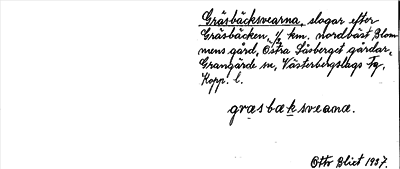 Gräsbäcksvearna, slogar efter
Gräsbäcken, 1/2 km. nordväst Blom-
mens gård, Östra Säsbergst gårdar,
Grangärde sn, Västerbergslags Fg,
Kopp. l.
græsbæksveana.
Otto Blixt 1937.